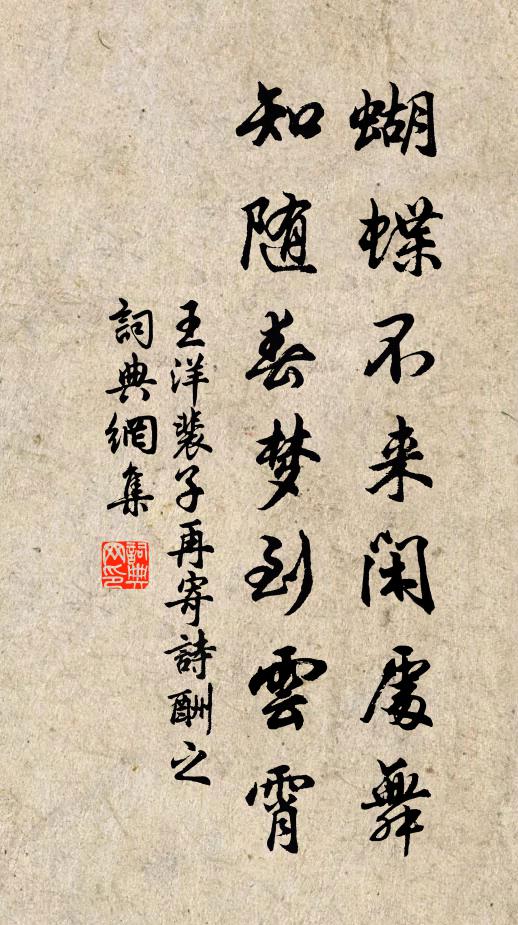 蝴蝶不来闲處舞
知随春梦到雲霄
王洋裴子再寄詩酬之
詞典網集
詞典
网印